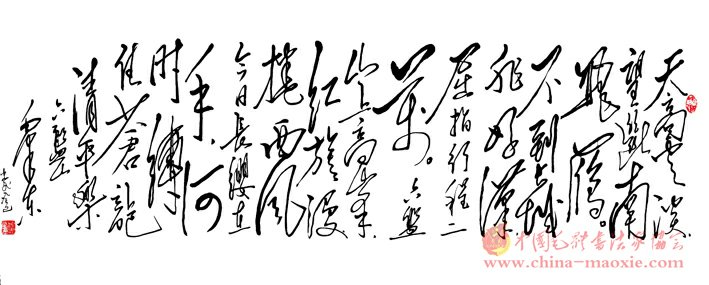 天高云淡
望断南
飛雁。
不到长城
非好漢
屈指行程二
萬。六盘
山上高峰
红旗漫
捲西风
今日長纓在
手,何
时縛
住蒼龍
清平樂
六盘山
毛泽东
中國毛體書法家協會
www.china-maoxie.com